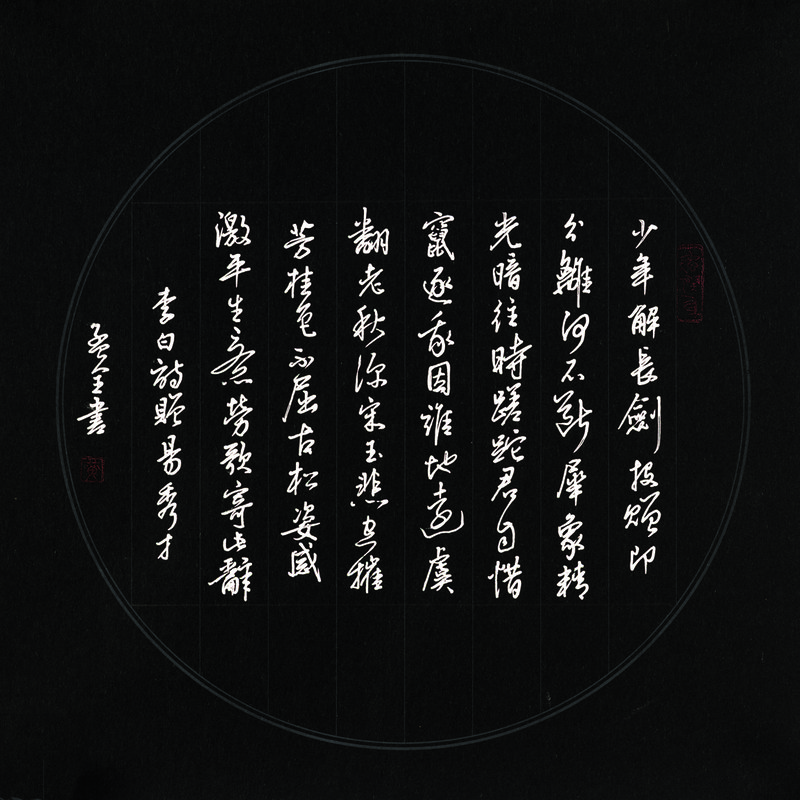 少年解長劍投贈即
分離何不斷犀象精
光暗往時蹉跎君自惜
竄逐我因誰地遠虞
翻老秋深宋玉悲空摧
芳桂色不屈古松姿感
激平生意勞歌寄此辭
李白詩贈易秀才
孟全書